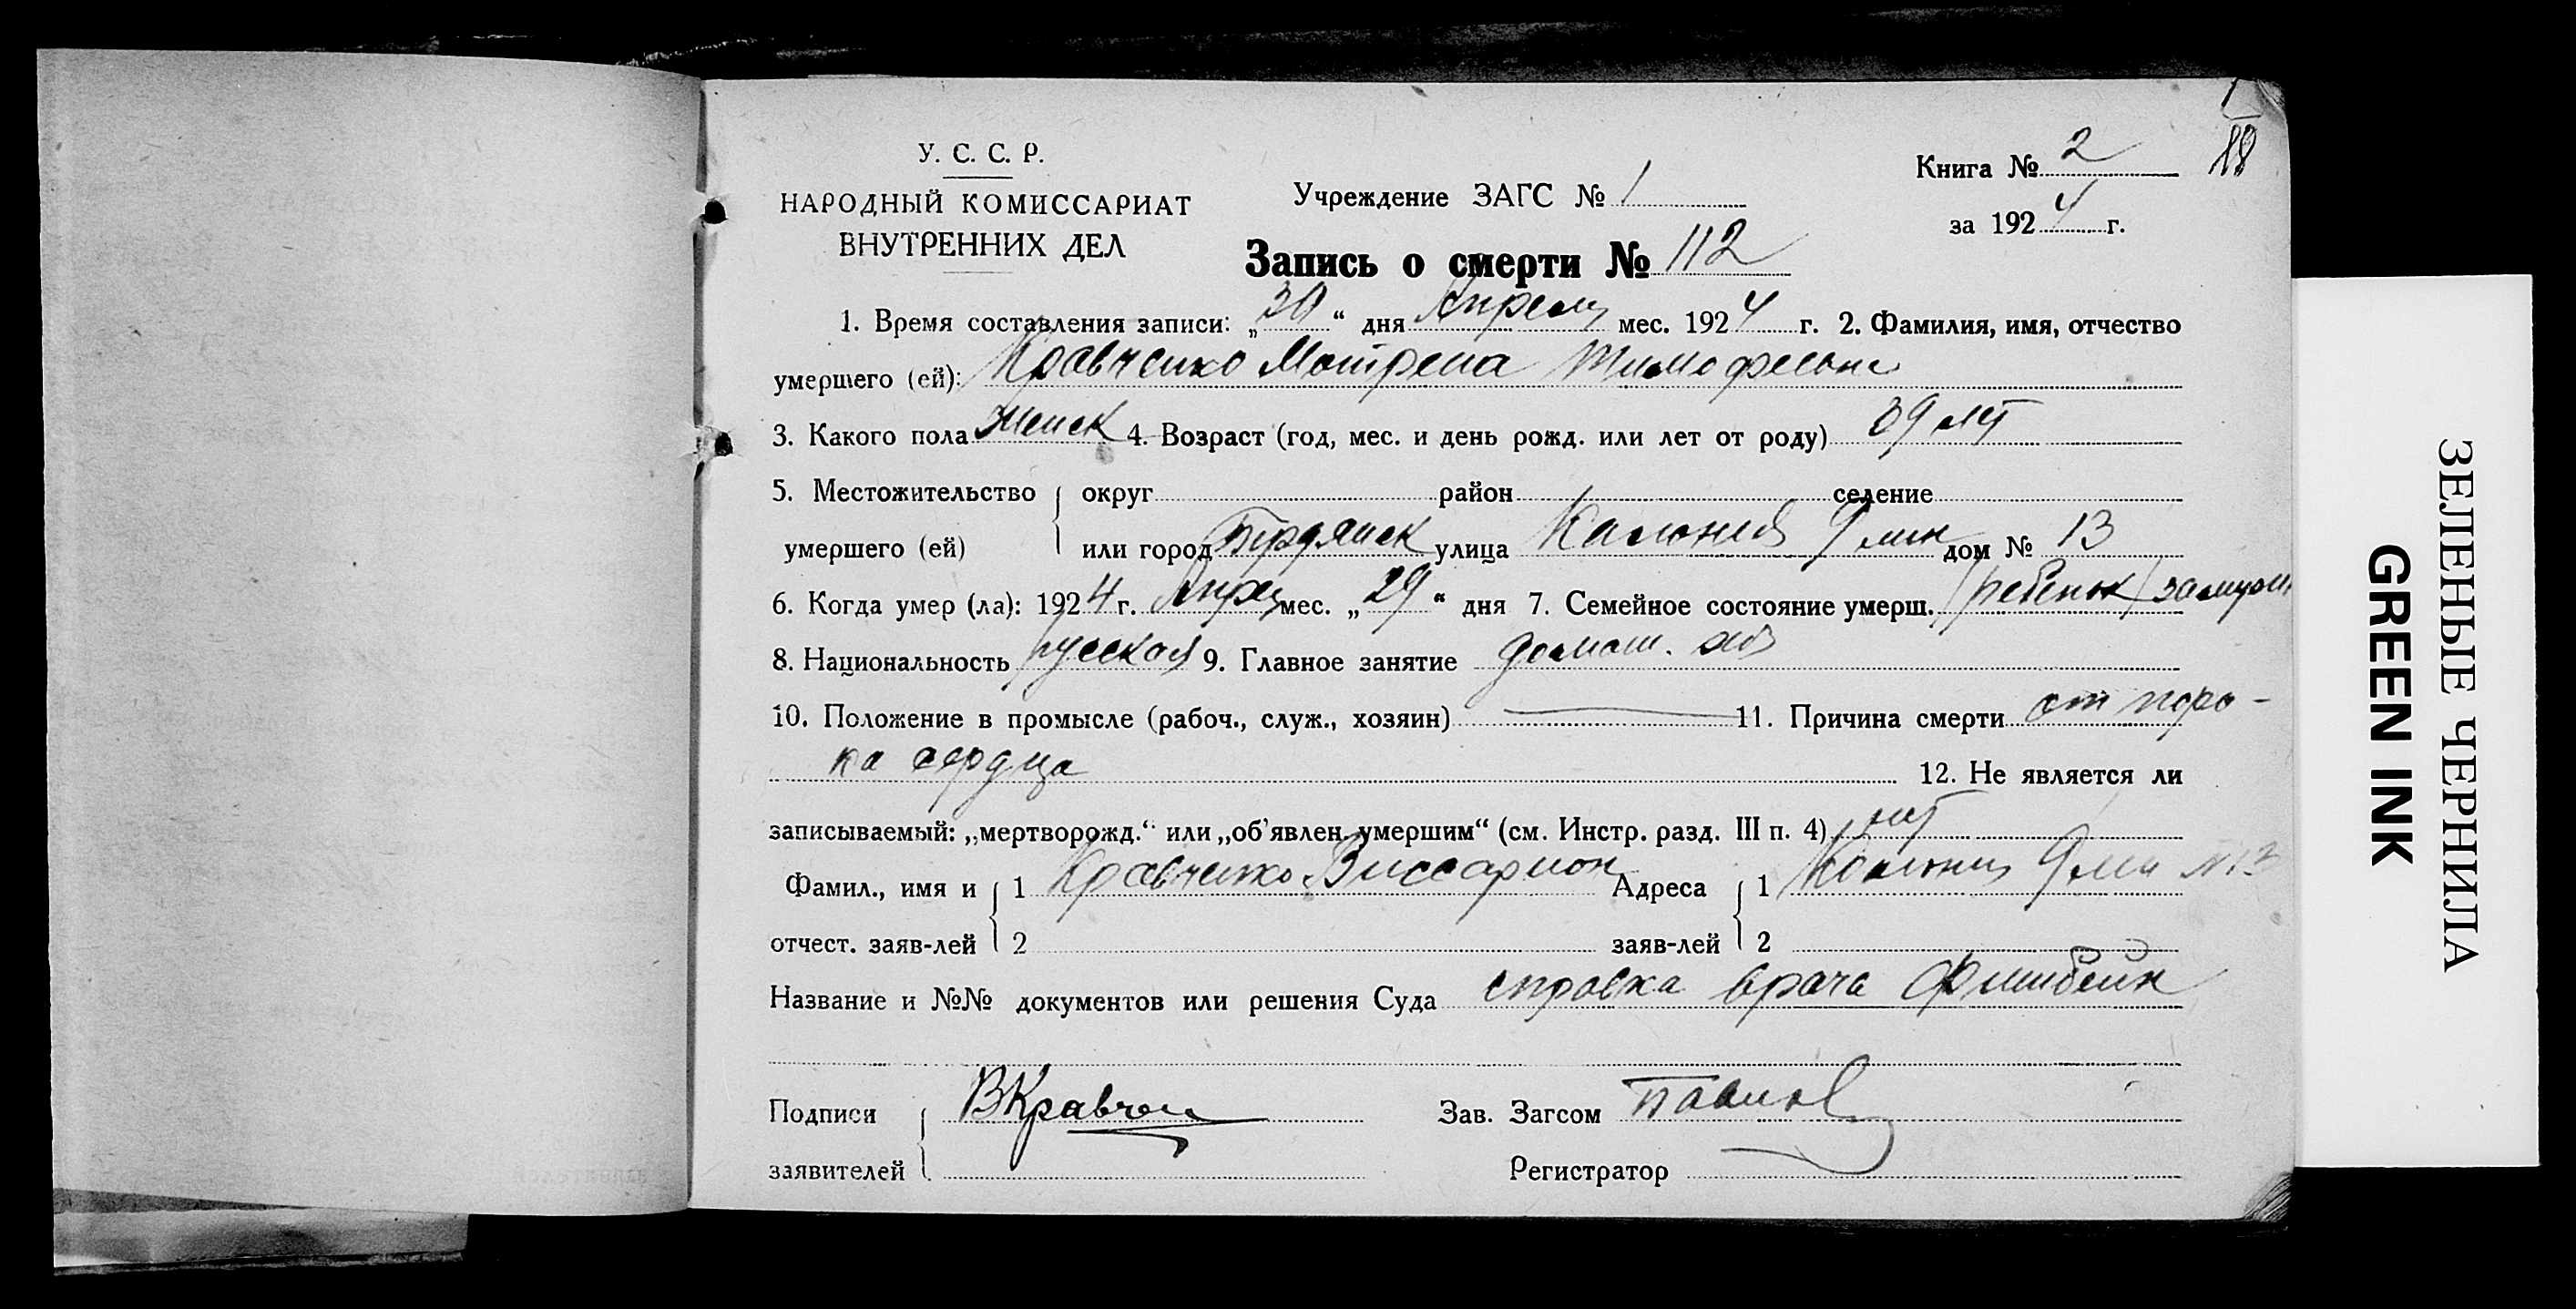 У. С. С. Р.
НАРОДНЫЙ КОМИССАРИАТ
ВНУТРЕННИХ ДЕЛ
Учреждение ЗАГС № 1
Книга № 2
за 1924 г.
1
88
Запись о смерти № 112
1. Время составления записи: „30“ дня Апреля мес. 1924 г. 2. Фамилия, имя, отчество
умершего (ей): Кравченко Матрена Тимофеевна
3. Какого пола женск 4. Возраст (год, мес. и день рожд. или лет от роду) 39 лет
5. Местожительство округ район селение
умершего (ей) или город Бердянск улица Колония 9 лин дом № 13
6. Когда умер (ла): 1924 г. Апрел мес. „29“ дня 7. Семейное состояние умерш. (ребенок) замужн
8. Национальность русская 9. Главное занятие домаш. хоз
10. Положение в промысле (рабоч., служ., хозяин) — 11. Причина смерти от поро-
ка сердца 12. Не является ли
записываемый: „мертворожд.“ или „об'явлен. умершим“ (см. Инстр. разд. III п. 4) нет
Фамил., имя и 1 Кравченко Виссарион Адреса 1 Колония 9 лин № 13
отчест. заяв-лей 2 заяв-лей 2
Название и №№ документов или решения Суда справка врача Фишбейн
Подписи ВКравчен Зав. Загсом Павлов
заявителей Регистратор
ЗЕЛЕНЫЕ ЧЕРНИЛА
GREEN INK